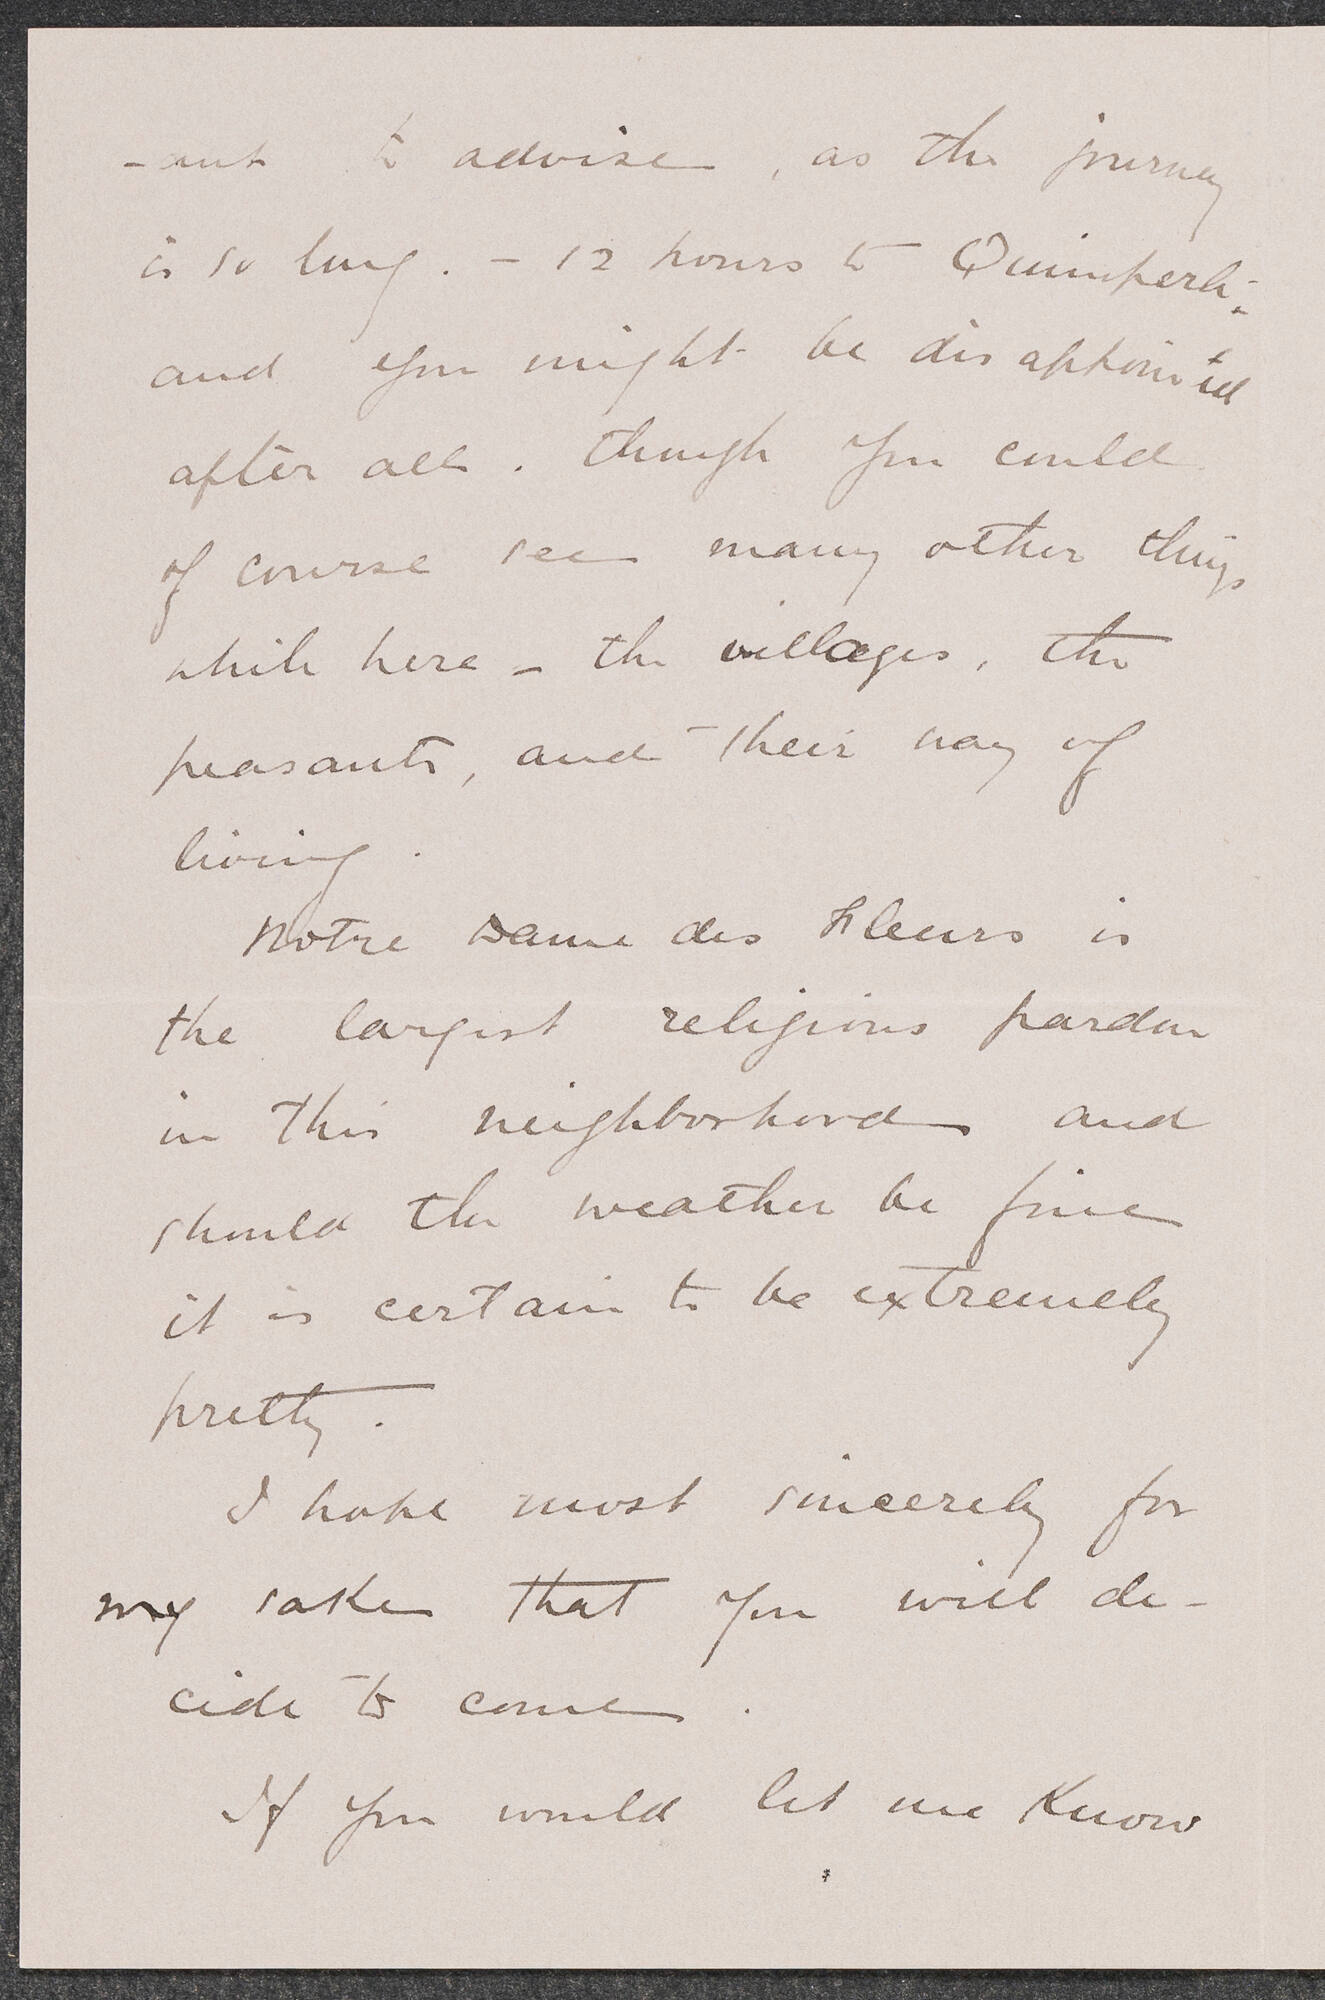 -ant to advise, as the journey
is so long. - 12 hours to Quimperlé:
and you might be disappointed
after all. though you could
of course see many other things
while here - the villages, the
peasants, and their way of
living.
Notre Dame des Fleurs is
the largest religious pardon
in this neighborhood and
should the weather be fine
it is certain to be extremely
pretty.
I hope most sincerely for
my sake that you will de-
cide to come.
If you would let me know